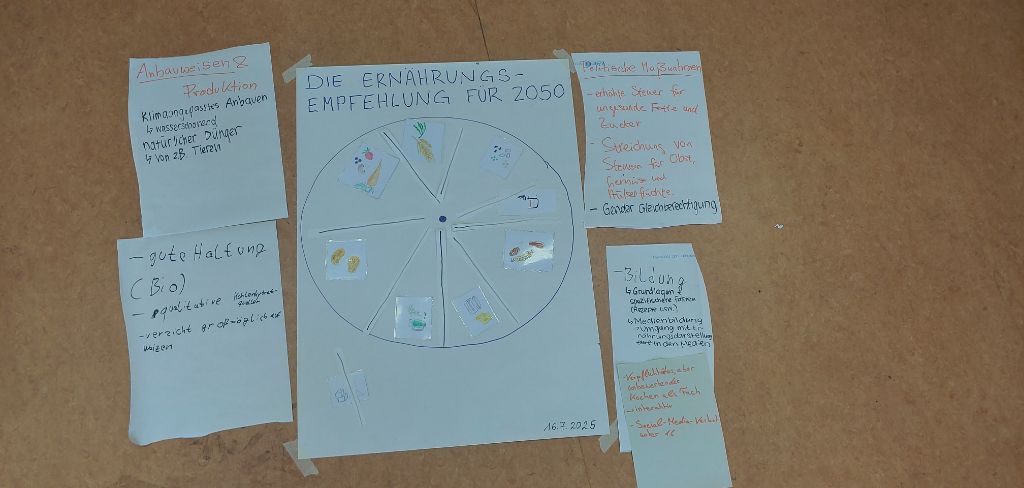 Anbauweisen &
Produktion
Klimaangepasstes Anbauen
↳ wasserschonend
natürlicher Dünger
↳ von z.B. Tieren
- gute Haltung
(Bio)
- qualitative
- verzicht größtmöglich auf
weizen
DIE ERNÄHRUNGS-
EMPFEHLUNG FÜR 2050
16.7.2025
Politische Maßnahmen
- erhöhte Steuer für
ungesunde Fette und
Zucker
- Streichung von
Steuern für Obst,
Gemüse und
Hülsenfrüchte.
- Gender Gleichberechtigung
- Bildung
↳ Grundlagen &
spezifischere Fakten
(Rezepte usw.)
↳ Medienbildung
Umgang mit Er-
nährungsdarstellung
in den Medien
- Verpflichtetes, aber
unbewertendes
Kochen als Fach
→ interaktiv
- Social-Media-Verbot
unter 16